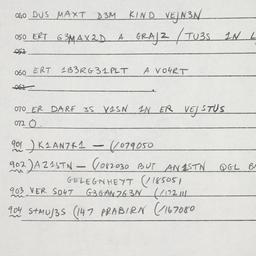 040 DUS MAXT D3M KIND VEJN3N
050 ERT G3MAX2D A GRAJ2 / TU3S IN L
052
060 ERT 1B3RG31PLT A VO4RT
062
070 ER DARF 3S V1SN IN ER VEJSTUS
072 O
901 ) K1AN7K1 — (/079050
902 ) AZ1STN — (/082030 BUT AN1STN QGL B
GELEGNHEYT (/185051
903 VER SO4T G3GAN763N (/172111
904 STMUJ3S (147 PRABIRN (/167080